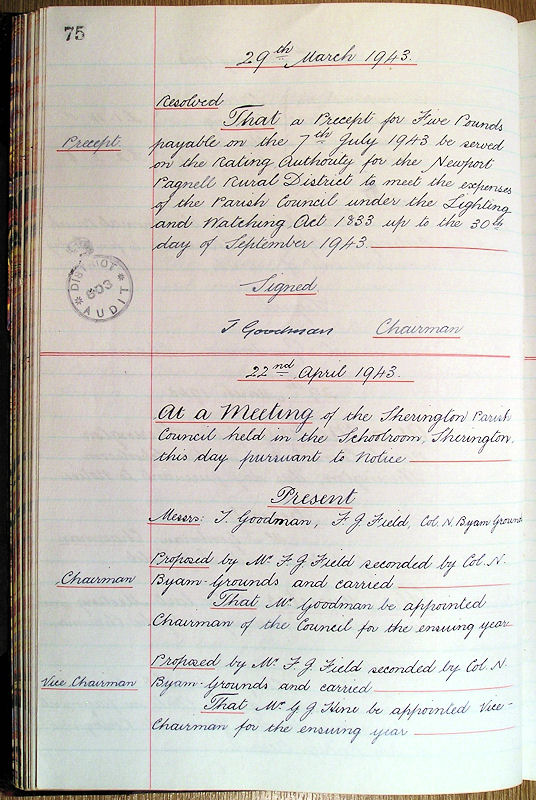 75
29th March 1943.
Resolved
That a Precept for Five Pounds
Precept.
payable on the 7th July 1943 be served
on the Rating Authority for the Newport
Pagnell Rural District to meet the expenses
of the Parish Council under the Lighting
and Watching Act 1833 up to the 30th
day of September 1943.
DISTRICT
603
AUDIT
Signed
T Goodman Chairman
22nd April 1943.
At a Meeting of the Sherington Parish
Council held in the Schoolroom, Sherington.
this day pursuant to Notice
Present
Messrs: T. Goodman, F G Field, Col. N. Byam Grounds
Proposed by Mr F G Field seconded by Col. N.
Chairman
Byam-Grounds and carried
That Mr Goodman be appointed
Chairman of the Council for the ensuing year
Proposed by Mr F G Field seconded by Col N.
Vice Chairman
Byam-Grounds and carried
That Mr G G Hine be appointed Vice-
Chairman for the ensuing year